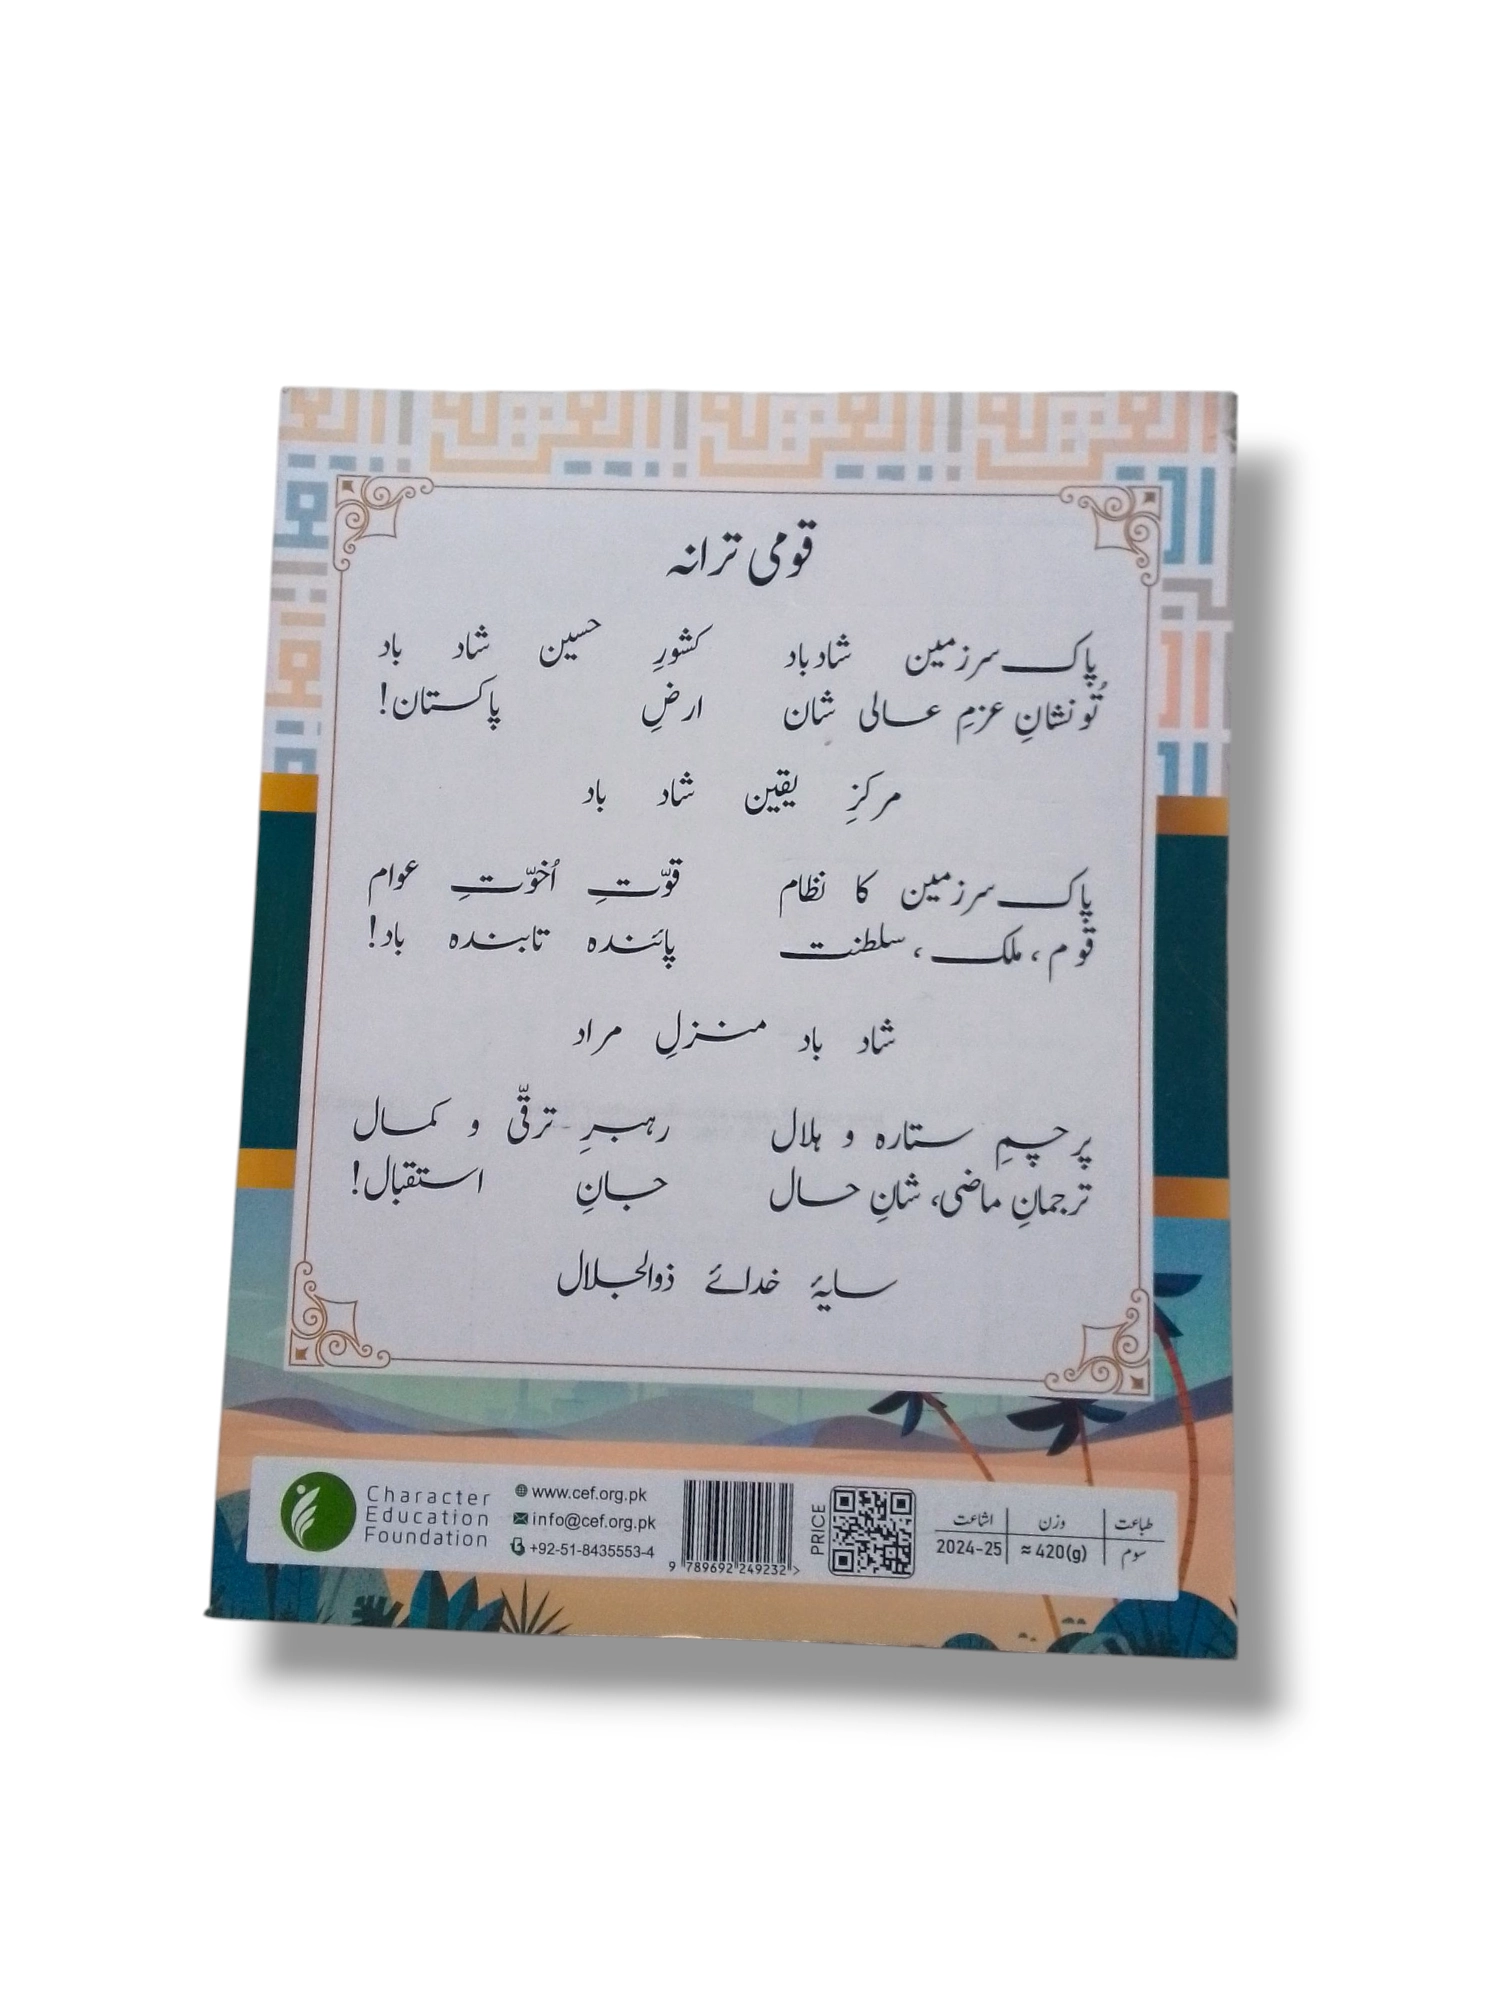 قومی ترانہ
پاک سرزمین شاد باد کشورِ حسین شاد باد
تُو نشانِ عزمِ عالی شان ارضِ پاکستان!
مرکزِ یقین شاد باد
پاک سرزمین کا نظام قوّتِ اُخوّتِ عوام
قوم، ملک، سلطنت پائندہ تابندہ باد!
شاد باد منزلِ مراد
پرچمِ ستارہ و ہلال رہبرِ ترقّی و کمال
ترجمانِ ماضی، شانِ حال جانِ استقبال!
سایۂ خدائے ذوالجلال
Character
Education
Foundation
www.cef.org.pk
info@cef.org.pk
+92-51-8435553-4
9 789692 249232 >
PRICE
طباعت وزن اشاعت
سوم ≈ 420(g) 2024-25